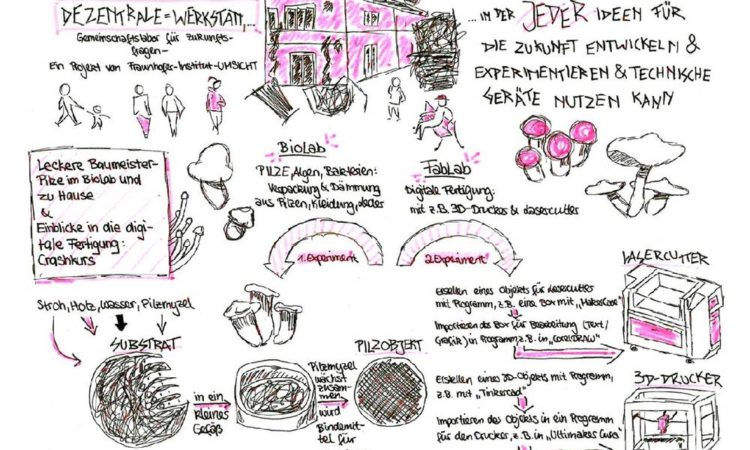 DEZENTRALE = WERKSTATT,...
Gemeinschaftslabor für Zukunfts-
fragen-
Ein Projekt von Fraunhofer-Institut-UMSICHT
...IN DER JEDER IDEEN FÜR
DIE ZUKUNFT ENTWICKELN &
EXPERIMENTIEREN & TECHNISCHE
GERÄTE NUTZEN KANN
Leckere Baumeister-
Pilze im BioLab und
zu Hause
&
Einblicke in die digi-
tale Fertigung:
Crashkurs
BioLab
PILZE, Algen, Bakterien:
Verpackung & Dämmung
aus Pilzen, Kleidung, Leder
FabLab
Digitale Fertigung:
mit z.B. 3D-Drucker & Lasercutter
1. Experiment
2. Experiment
Stroh, Holz, Wasser, Pilzmyzel
SUBSTRAT
in ein
kleines
Gefäß
Pilzmyzel
wächst
zusam-
men,
wird
Bindemit-
tel für
PILZOBJEKT
LASERCUTTER
Erstellen eines Objekts für Lasercutter
mit Programm, z.B. eine Box mit „MakerCase"
Importieren der Box für Bearbeitung (Text/
Grafik) in Programm, z.B. in „CorelDRAW"
3D-DRUCKER
Erstellen eines 3D-Objekts mit Programm,
z.B. mit „Tinkercad"
Importieren des Objekts in ein Programm
für den Drucker, z.B. in „Ultimaker Cura"